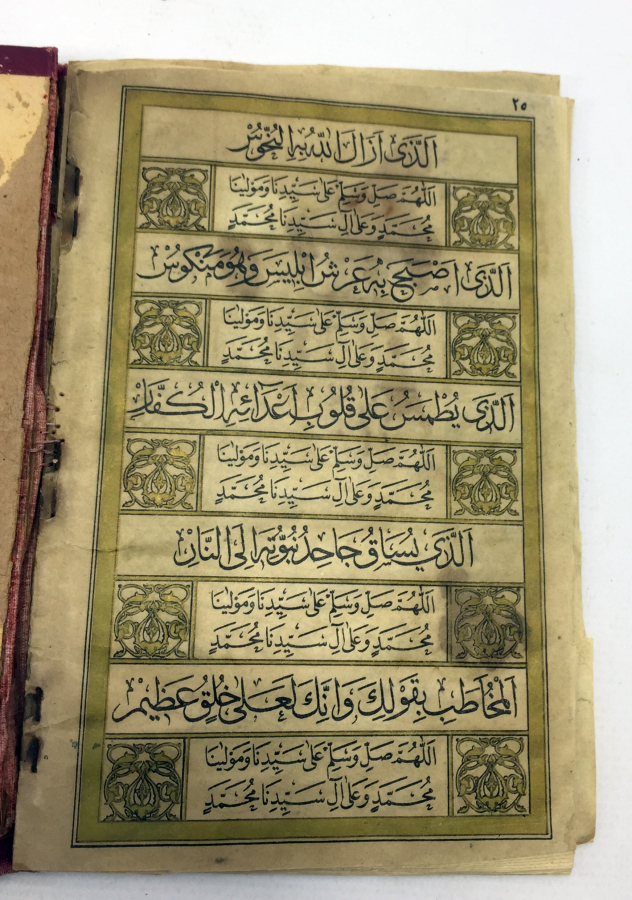 ٢٥
اَلَّذٖى اَزَالَ اللّٰهُ بِهِ النُّحُوسُ
اَللّٰهُمَّ صَلِّ وَسَلِّمْ عَلٰى سَيِّدِنَا وَمَوْلٰينَا
مُحَمَّدٍ وَعَلٰى اٰلِ سَيِّدِنَا مُحَمَّدٍ
اَلَّذٖى اَصْبَحَ بِهِ عَرْشُ اِبْلٖيسَ وَهُوَ مَنْكُوسٌ
اَللّٰهُمَّ صَلِّ وَسَلِّمْ عَلٰى سَيِّدِنَا وَمَوْلٰينَا
مُحَمَّدٍ وَعَلٰى اٰلِ سَيِّدِنَا مُحَمَّدٍ
اَلَّذٖى يُطْمَسُ عَلٰى قُلُوبِ اَعْدَائِهِ الْكُفَّارُ
اَللّٰهُمَّ صَلِّ وَسَلِّمْ عَلٰى سَيِّدِنَا وَمَوْلٰينَا
مُحَمَّدٍ وَعَلٰى اٰلِ سَيِّدِنَا مُحَمَّدٍ
اَلَّذٖي يُسَاقُ جَاحِدُ نُبُوَّتِهِ اِلَى النَّارِ
اَللّٰهُمَّ صَلِّ وَسَلِّمْ عَلٰى سَيِّدِنَا وَمَوْلٰينَا
مُحَمَّدٍ وَعَلٰى اٰلِ سَيِّدِنَا مُحَمَّدٍ
اَلْمُخَاطَبِ بِقَوْلِكَ وَاِنَّكَ لَعَلٰى خُلُقٍ عَظٖيمٍ
اَللّٰهُمَّ صَلِّ وَسَلِّمْ عَلٰى سَيِّدِنَا وَمَوْلٰينَا
مُحَمَّدٍ وَعَلٰى اٰلِ سَيِّدِنَا مُحَمَّدٍ